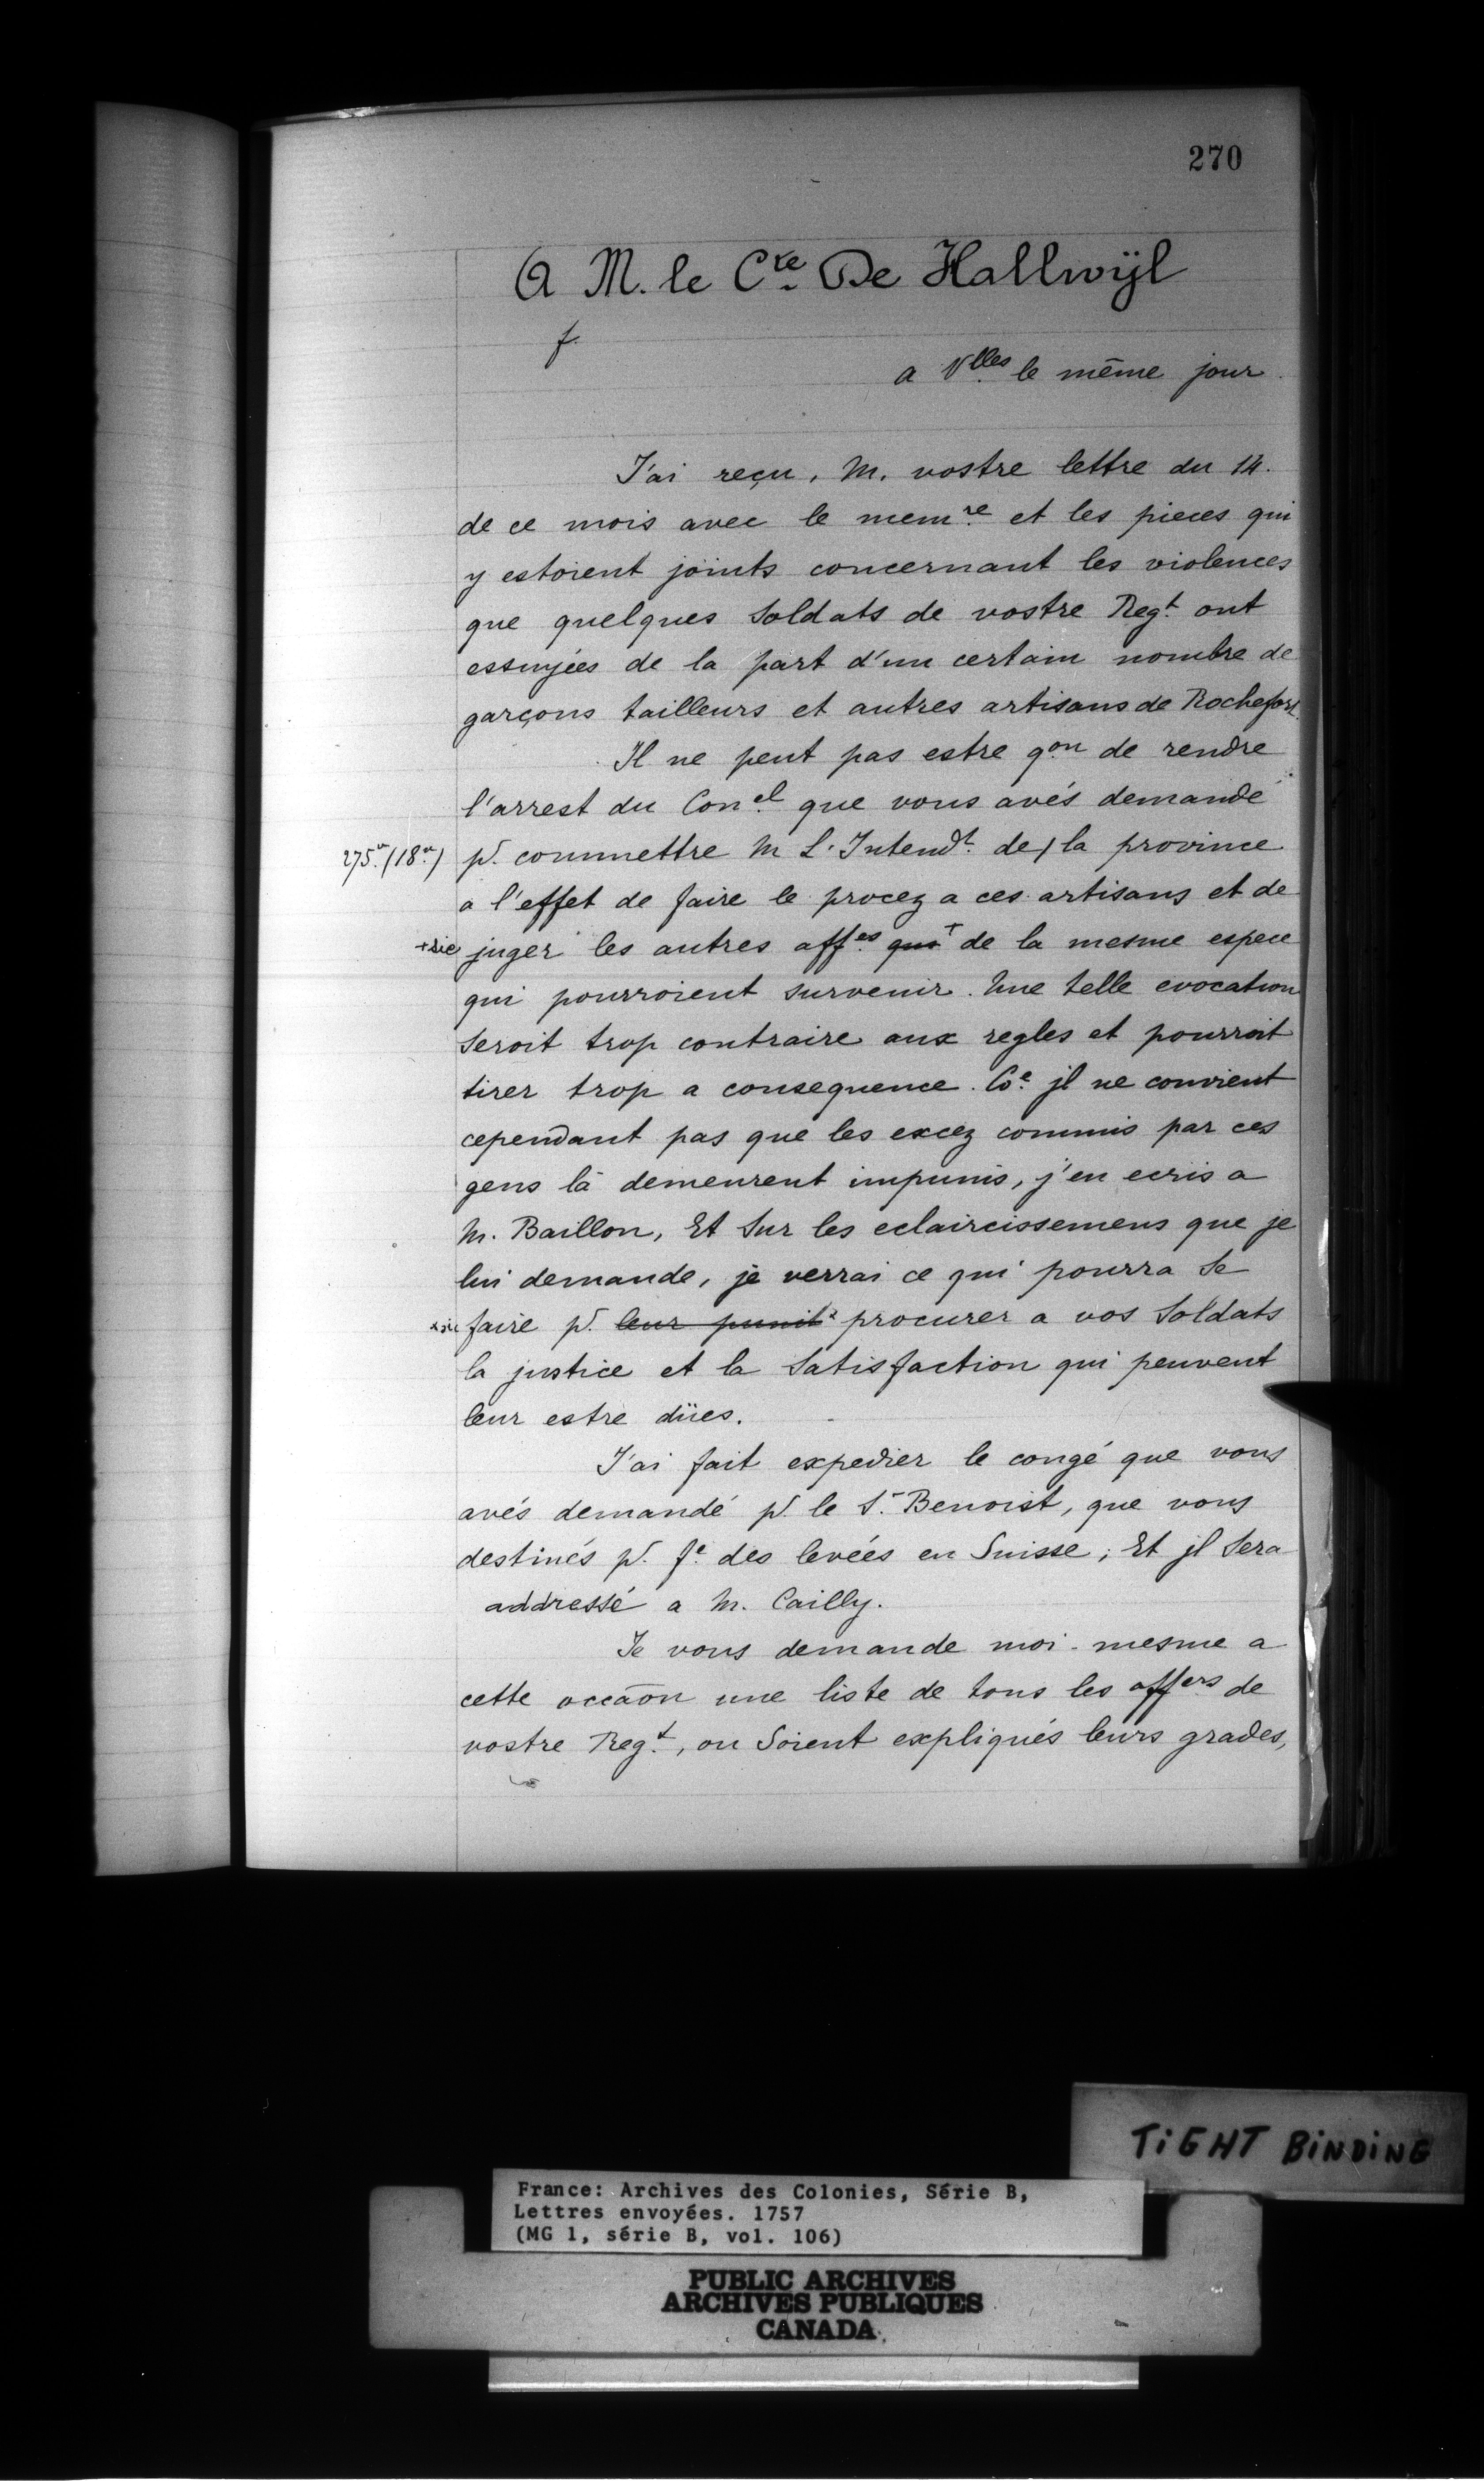 270
A M. le Cte De Hallwÿl
f.
a Vlles le même jour.
J'ai reçu, M. vostre lettre du 14.
de ce mois avec le memre et les pieces qui
y estoient joints concernant les violences
que quelques Soldats de vostre Regt ont
essuyées de la part d'un certain nombre de
garçons tailleurs et autres artisans de Rochefort.
Il ne peut pas estre qon de rendre
l'arrest du Conel que vous avés demandé
275.v (18.v) pr. commettre M L'Intendt de/ la province
a l'effet de faire le procez a ces artisans et de
+sic juger les autres affes qui + de la mesme espece
qui pourroient survenir. Une telle evocation
Seroit trop contraire aux regles et pourroit
tirer trop a consequence. Coe jl ne convient
cependant pas que les excez commis par ces
gens là demeurent impunis, j'en ecris a
M. Baillon, Et Sur les eclaircissemens que je
lui demande, je verrai ce qui pourra Se
xsic faire pr. leur punit x procurer a vos Soldats
la justice et la Satisfaction qui peuvent
leur estre dües.
J'ai fait expedier le congé que vous
avés demandé pr. le Sr Benoist, que vous
destinés pr. fe des levées en Suisse; Et jl Sera
addressé a M. Cailly.
Je vous demande moi-mesme a
cette occãon une liste de tous les offers de
vostre Regt, ou Soient expliqués leurs grades,
TiGHT BiNDiNG
France: Archives des Colonies, Série B,
Lettres envoyées. 1757
(MG 1, série B, vol. 106)
PUBLIC ARCHIVES
ARCHIVES PUBLIQUES
CANADA